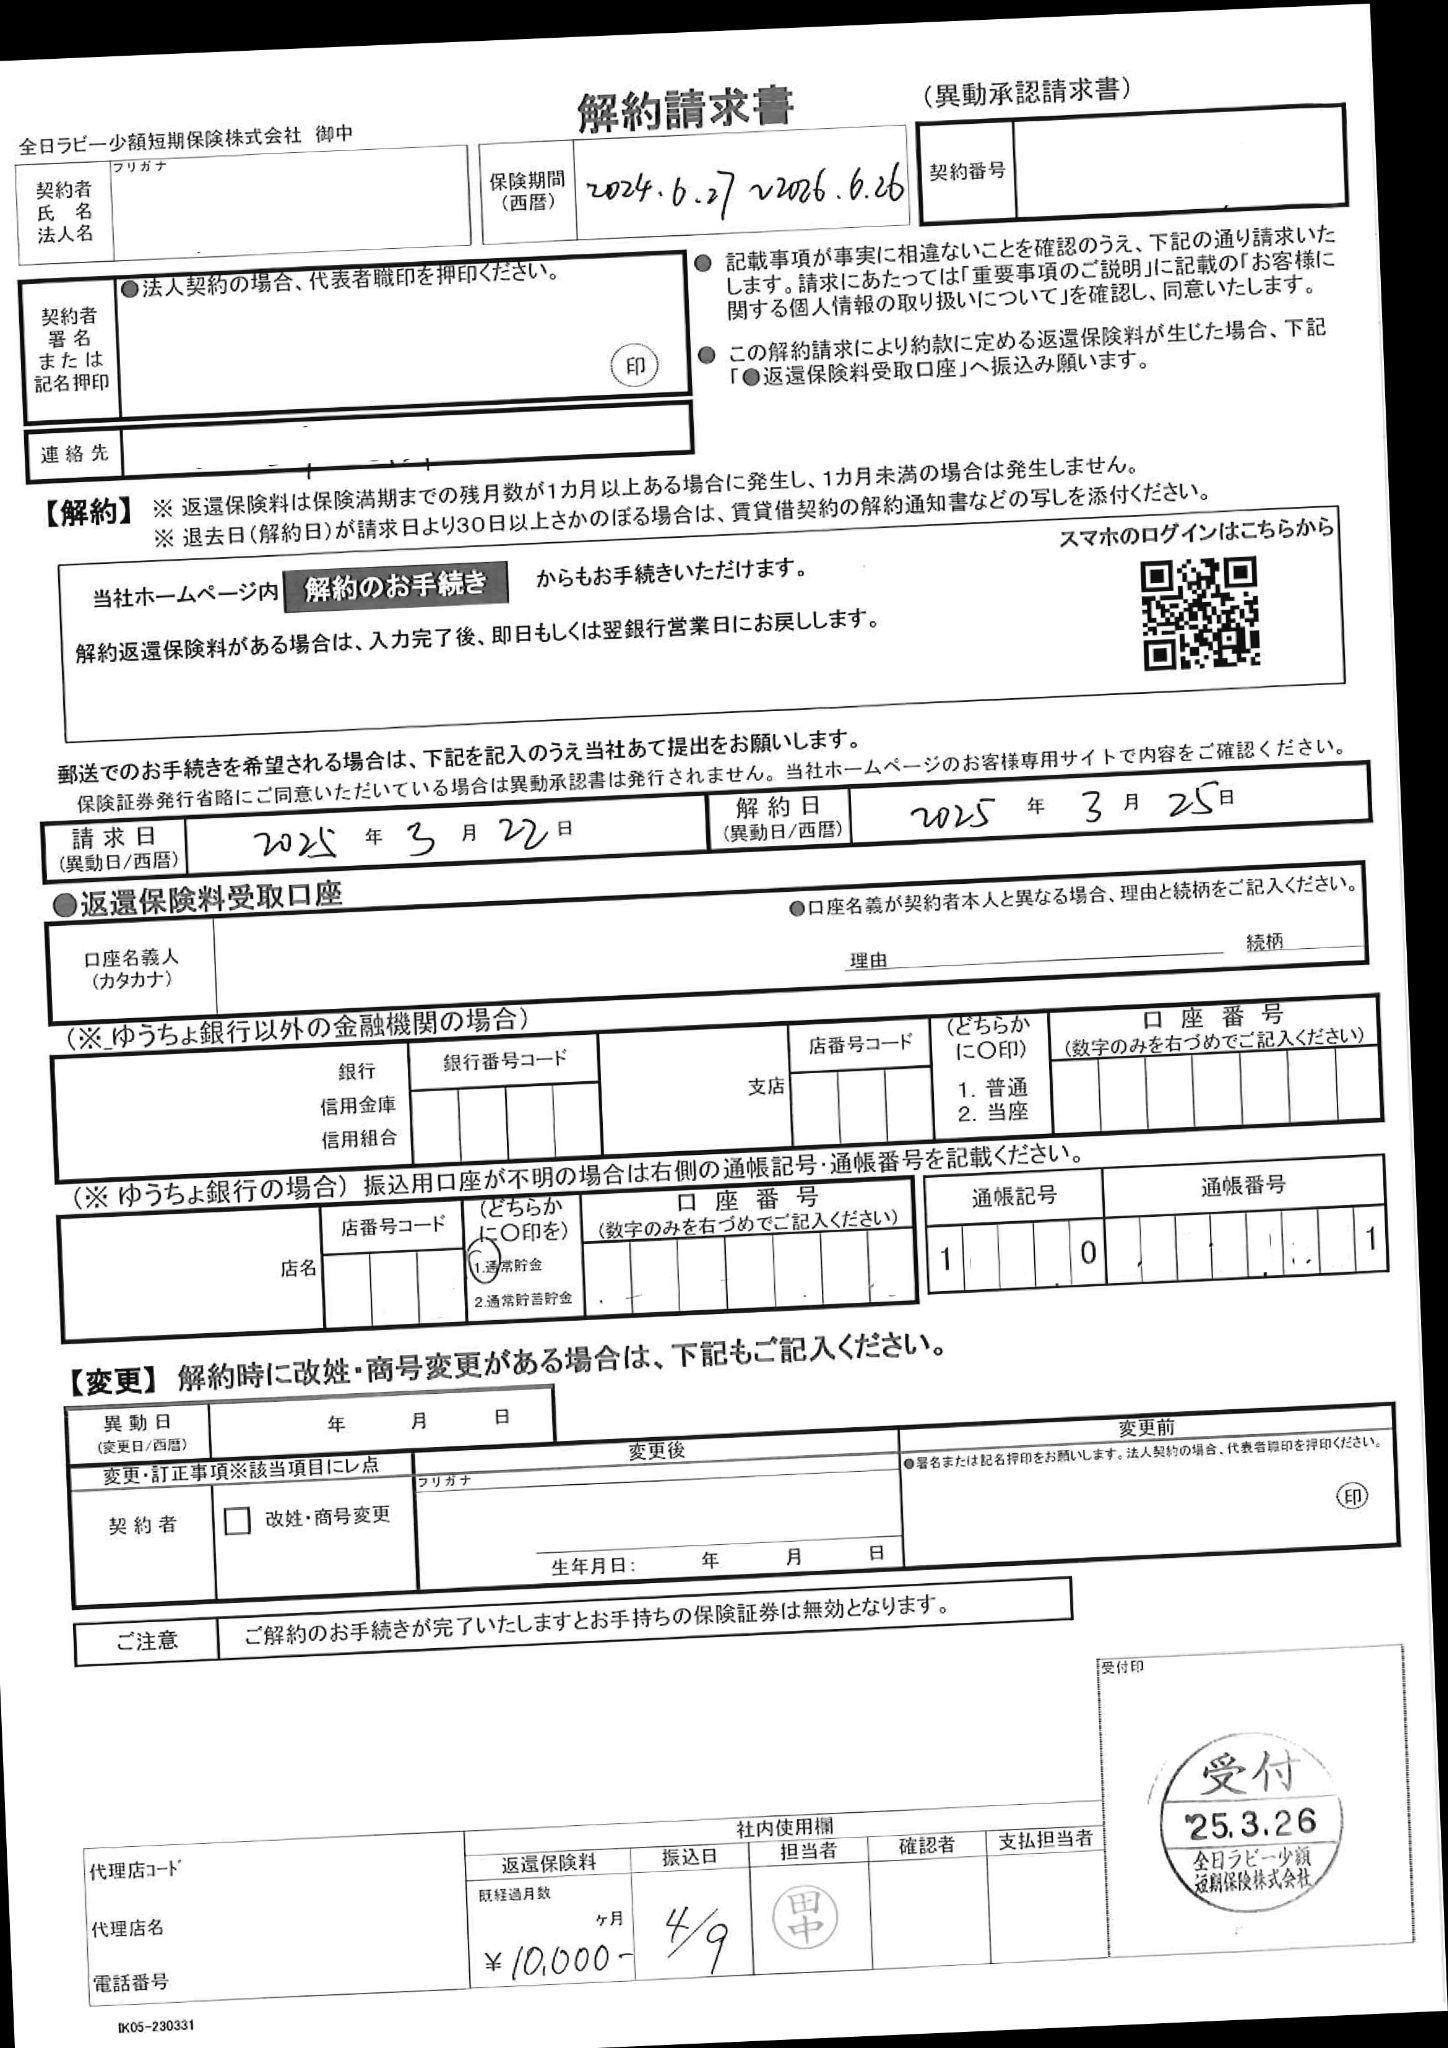 解約請求書
(異動承認請求書)
全日ラビー少額短期保険株式会社 御中
契約者
氏 名
法人名
フリガナ
保険期間
(西暦)
2024.6.27 ~2026.6.26
契約番号
契約者
署 名
または
記名押印
●法人契約の場合、代表者職印を押印ください。
印
連絡先
● 記載事項が事実に相違ないことを確認のうえ、下記の通り請求いた
します。請求にあたっては「重要事項のご説明」に記載の「お客様に
関する個人情報の取り扱いについて」を確認し、同意いたします。
● この解約請求により約款に定める返還保険料が生じた場合、下記
「●返還保険料受取口座」へ振込み願います。
【解約】 ※ 返還保険料は保険満期までの残月数が1カ月以上ある場合に発生し、1カ月未満の場合は発生しません。
※ 退去日(解約日)が請求日より30日以上さかのぼる場合は、賃貸借契約の解約通知書などの写しを添付ください。
スマホのログインはこちらから
当社ホームページ内 解約のお手続き からもお手続きいただけます。
解約返還保険料がある場合は、入力完了後、即日もしくは翌銀行営業日にお戻しします。
郵送でのお手続きを希望される場合は、下記を記入のうえ当社あて提出をお願いします。
保険証券発行省略にご同意いただいている場合は異動承認書は発行されません。当社ホームページのお客様専用サイトで内容をご確認ください。
請求日
(異動日/西暦)
2025 年 3 月 22 日
解約日
(異動日/西暦)
2025 年 3 月 25 日
●返還保険料受取口座
●口座名義が契約者本人と異なる場合、理由と続柄をご記入ください。
口座名義人
(カタカナ)
理由
続柄
(※ ゆうちょ銀行以外の金融機関の場合)
銀行
信用金庫
信用組合
銀行番号コード
支店
店番号コード
(どちらか
に○印)
1. 普通
2. 当座
口座番号
(数字のみを右づめでご記入ください)
(※ ゆうちょ銀行の場合) 振込用口座が不明の場合は右側の通帳記号・通帳番号を記載ください。
店名
店番号コード
(どちらか
に○印を)
1.通常貯金
2.通常貯蓄貯金
口座番号
(数字のみを右づめでご記入ください)
通帳記号
1 0
通帳番号
1
【変更】 解約時に改姓・商号変更がある場合は、下記もご記入ください。
異動日
(変更日/西暦)
年 月 日
変更・訂正事項※該当項目にレ点
変更後
変更前
契約者
改姓・商号変更
フリガナ
生年月日: 年 月 日
●署名または記名押印をお願いします。法人契約の場合、代表者職印を押印ください。
印
ご注意
ご解約のお手続きが完了いたしますとお手持ちの保険証券は無効となります。
受付印
受付
'25.3.26
全日ラビー少額
短期保険株式会社
代理店コード
代理店名
電話番号
社内使用欄
返還保険料
振込日
担当者
確認者
支払担当者
既経過月数
ヶ月
¥10,000-
4/9
田中
IK05-230331